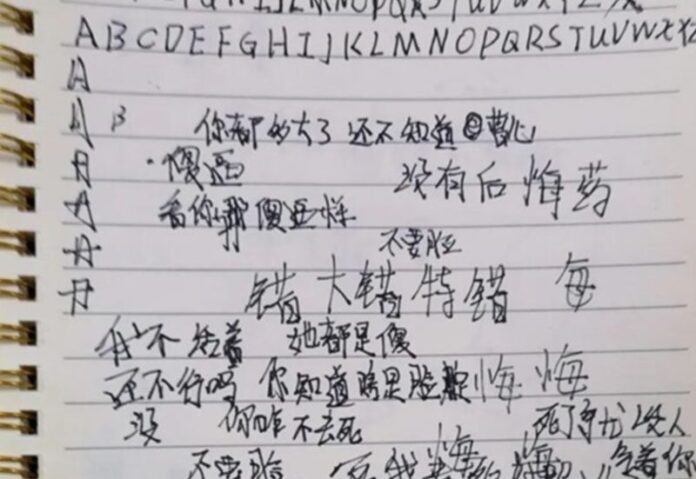 GHIJKLMNOPQRSTUVWXYZ
ABCDEFGHIJKLMNOPQRSTUVWXYZ
A
A B 你都多大了 还不知道 曹心
A ·傻逼 没有后悔药
A 看你那傻逼样
A 不要脸
A 错大错特错 每
我不活着 她都是傻
还不行吗 你知道 是脸 悔 悔
没 你咋不去死 死了 没人
不要脸 悔 气着你